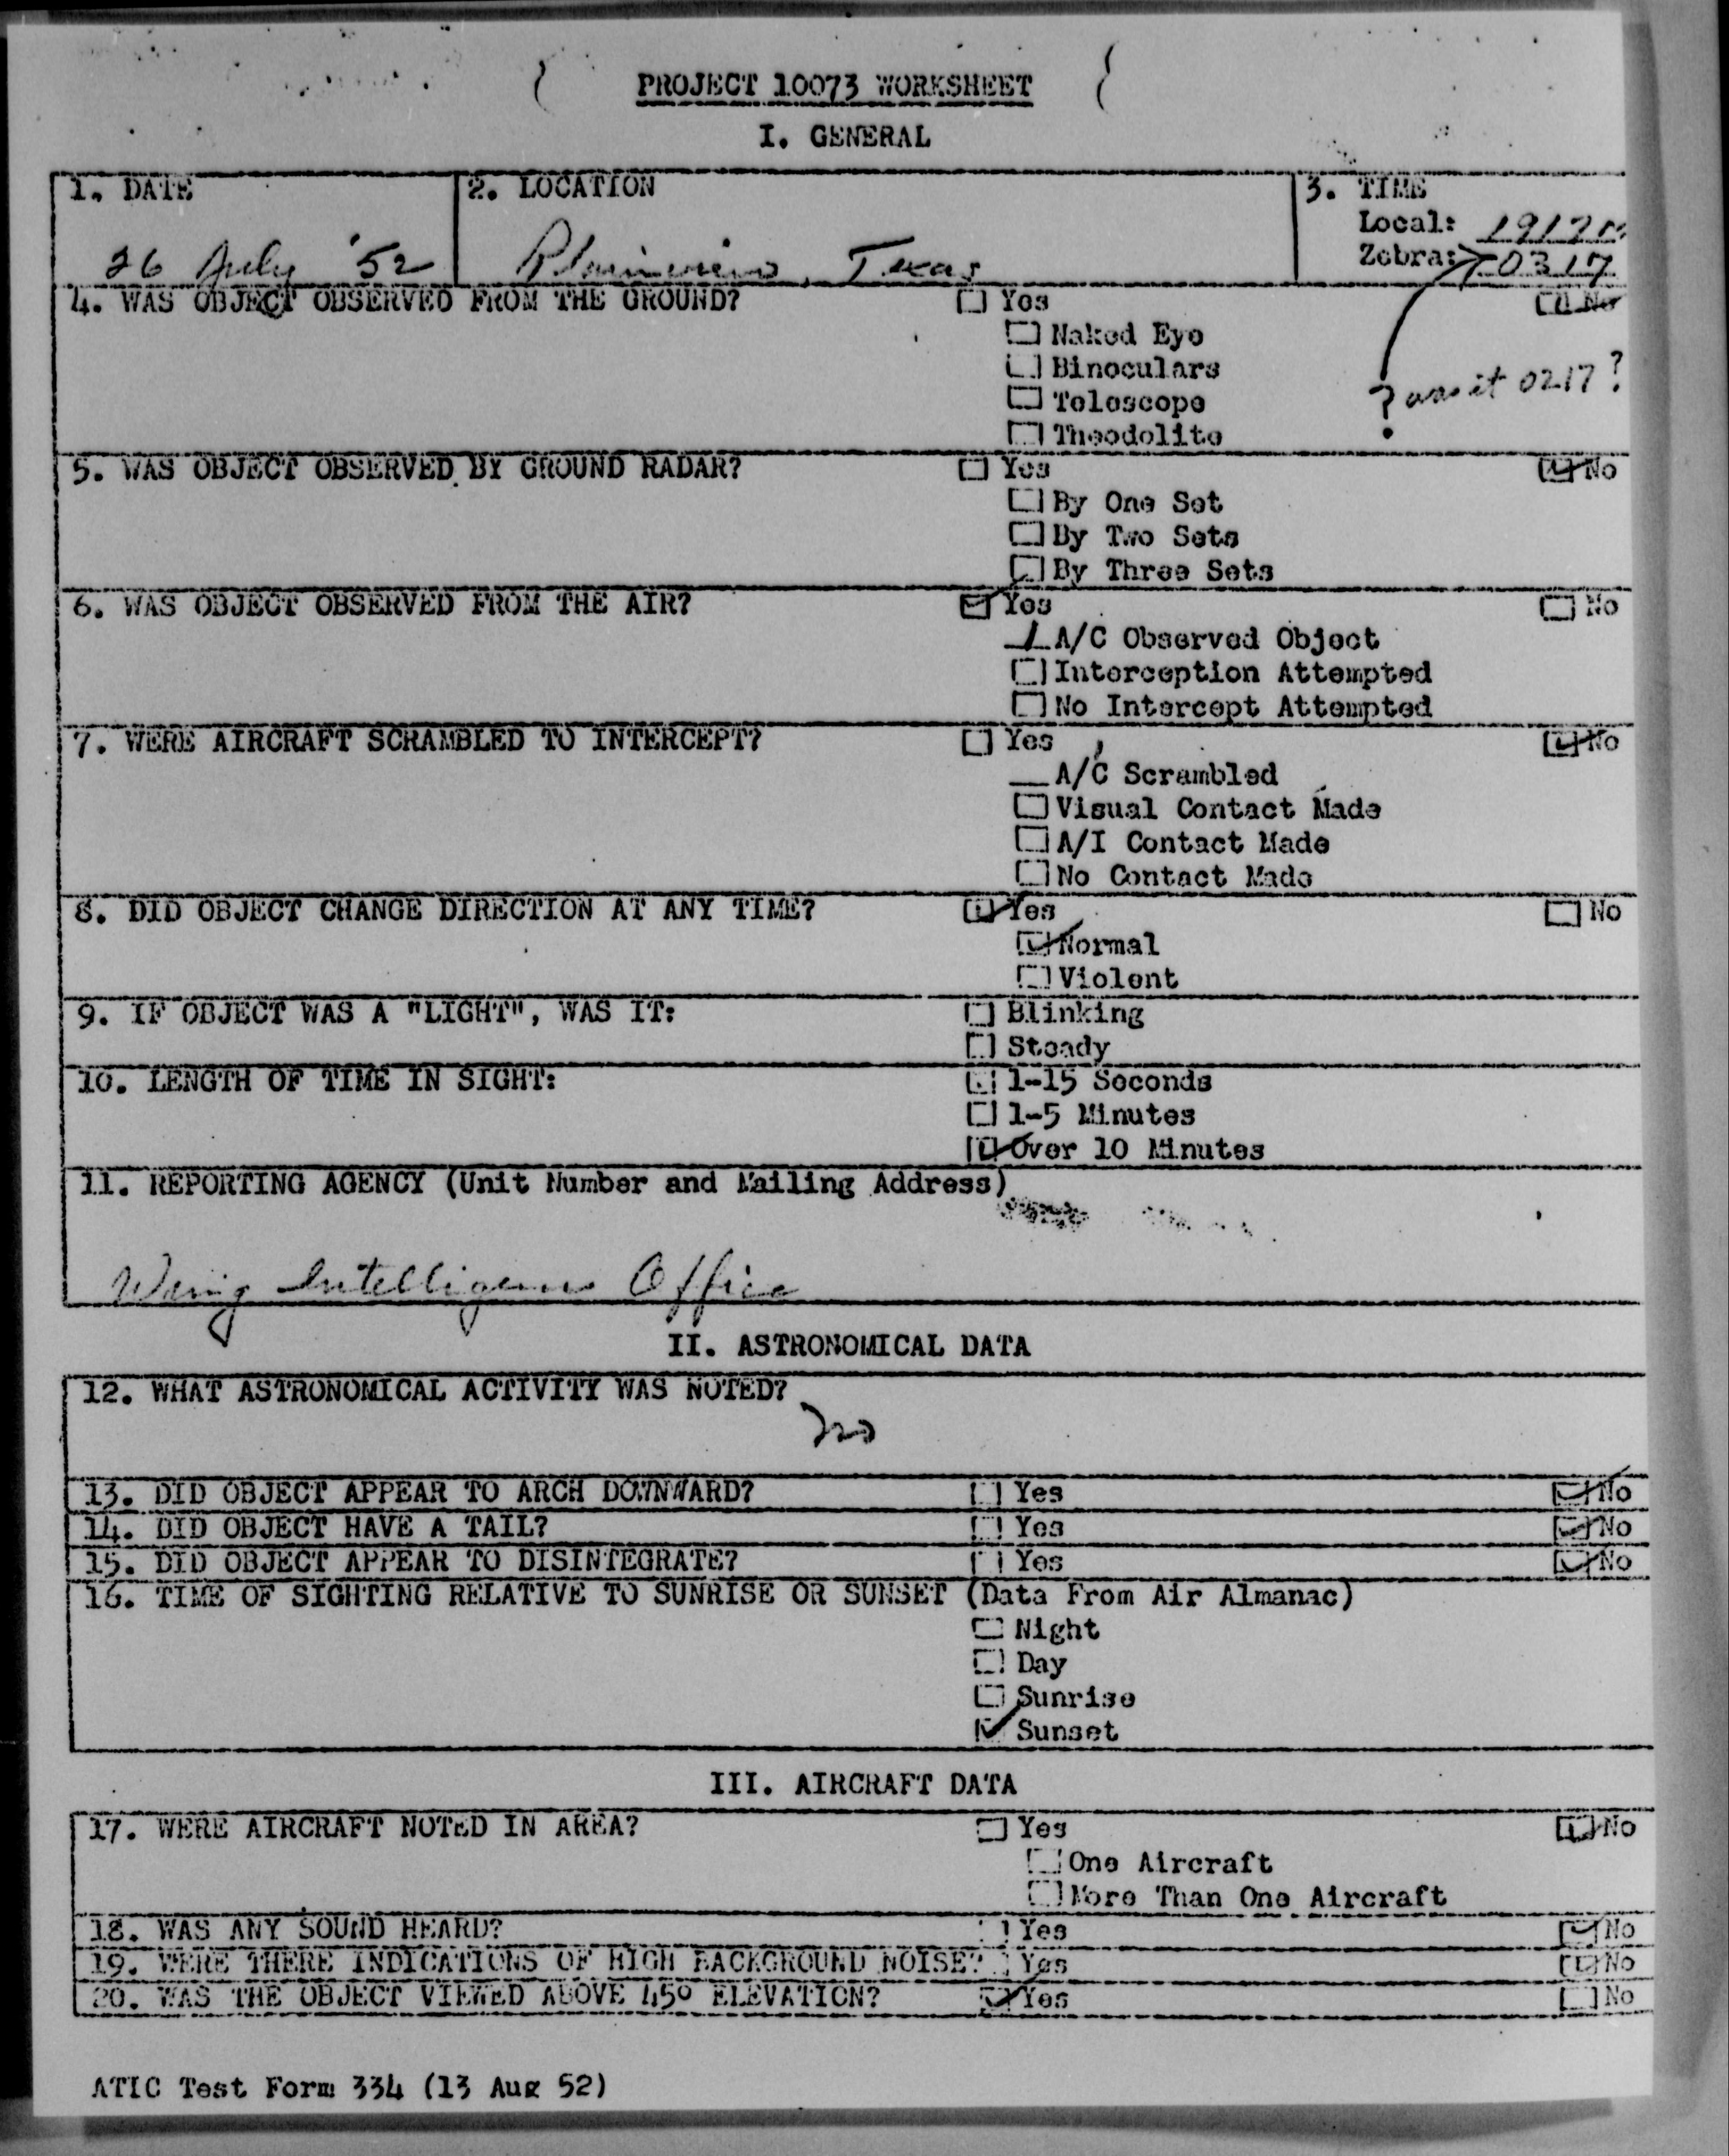 PROJECT 10073 WORKSHEET
I. GENERAL
1. DATE
26 July '52
2. LOCATION
Plainview, Texas
3. TIME
Local: 1917
Zebra: 0317
? was it 0217?
4. WAS OBJECT OBSERVED FROM THE GROUND? Yes No
Naked Eye
Binoculars
Telescope
Theodolite
5. WAS OBJECT OBSERVED BY GROUND RADAR? Yes No
By One Set
By Two Sets
By Three Sets
6. WAS OBJECT OBSERVED FROM THE AIR? Yes No
1 A/C Observed Object
Interception Attempted
No Intercept Attempted
7. WERE AIRCRAFT SCRAMBLED TO INTERCEPT? Yes No
A/C Scrambled
Visual Contact Made
A/I Contact Made
No Contact Made
8. DID OBJECT CHANGE DIRECTION AT ANY TIME? Yes No
Normal
Violent
9. IF OBJECT WAS A "LIGHT", WAS IT: Blinking
Steady
10. LENGTH OF TIME IN SIGHT: 1-15 Seconds
1-5 Minutes
Over 10 Minutes
11. REPORTING AGENCY (Unit Number and Mailing Address)
Wing Intelligence Office
II. ASTRONOMICAL DATA
12. WHAT ASTRONOMICAL ACTIVITY WAS NOTED?
no
13. DID OBJECT APPEAR TO ARCH DOWNWARD? Yes No
14. DID OBJECT HAVE A TAIL? Yes No
15. DID OBJECT APPEAR TO DISINTEGRATE? Yes No
16. TIME OF SIGHTING RELATIVE TO SUNRISE OR SUNSET (Data From Air Almanac)
Night
Day
Sunrise
Sunset
III. AIRCRAFT DATA
17. WERE AIRCRAFT NOTED IN AREA? Yes No
One Aircraft
More Than One Aircraft
18. WAS ANY SOUND HEARD? Yes No
19. WERE THERE INDICATIONS OF HIGH BACKGROUND NOISE? Yes No
20. WAS THE OBJECT VIEWED ABOVE 45° ELEVATION? Yes No
ATIC Test Form 334 (13 Aug 52)